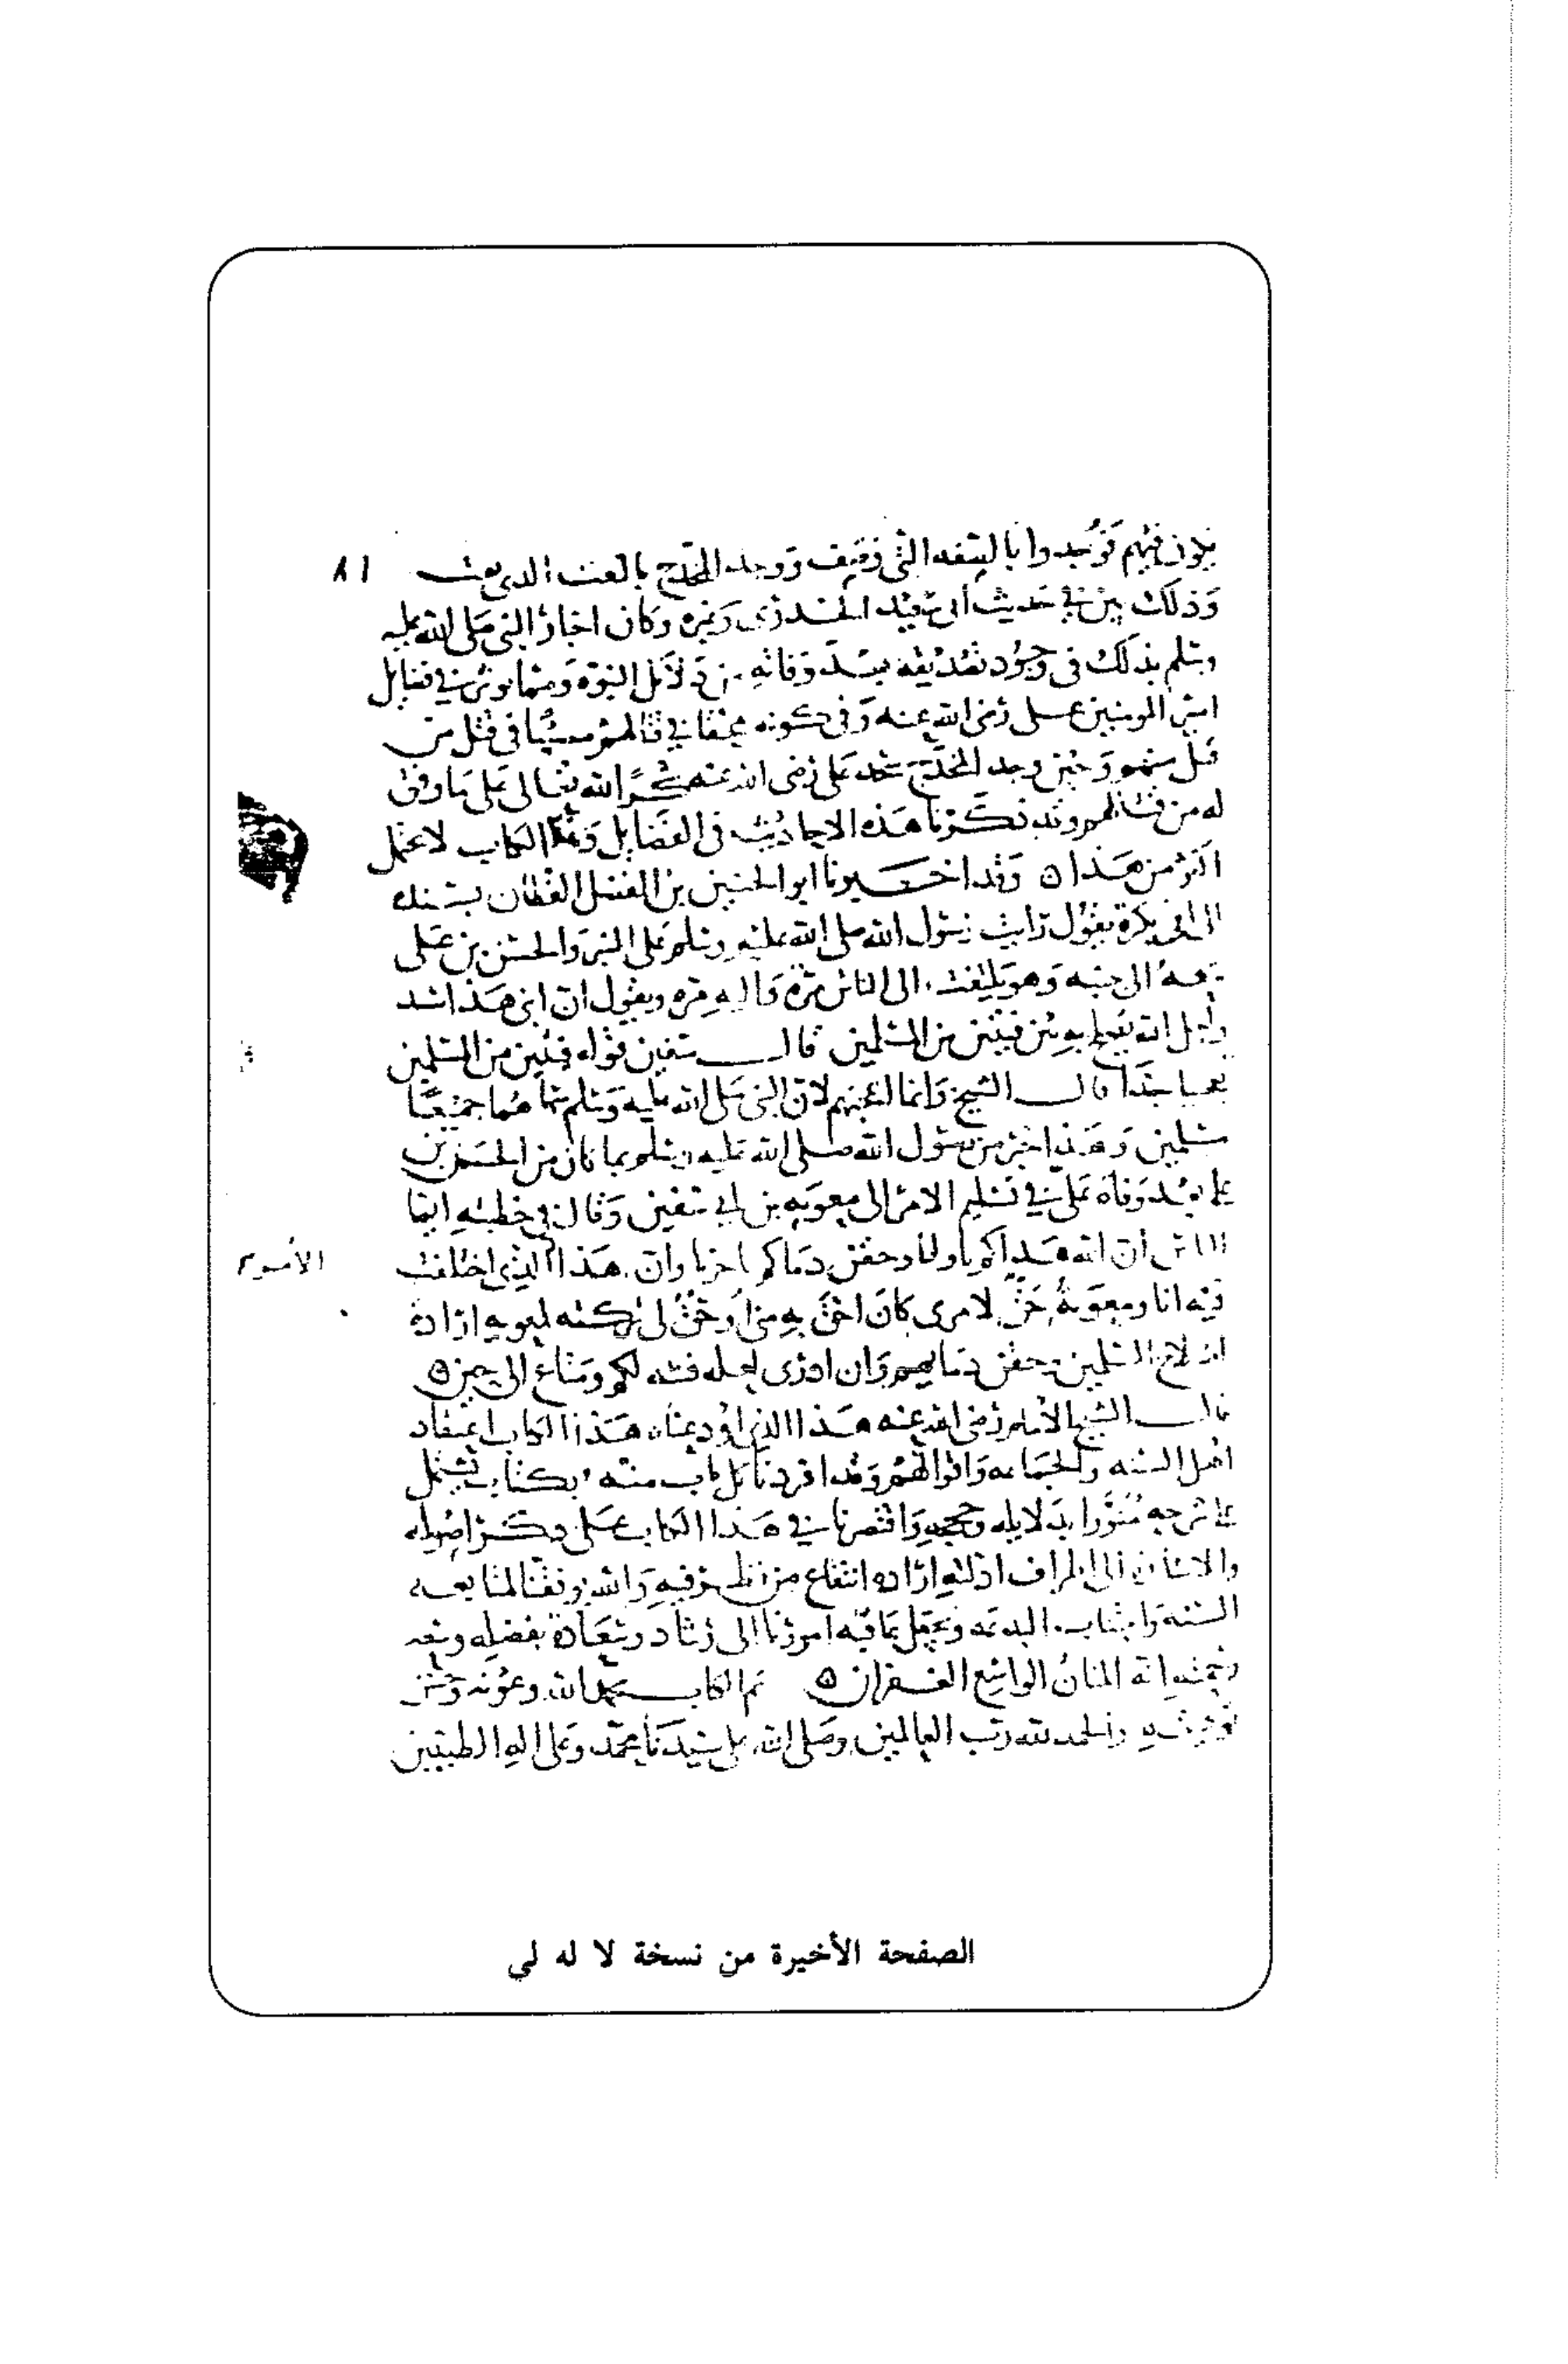 يكون فيهم فوجدوا بالصفة التي وصف ووجد المخدج بالنعت الذي نعت
٨١
وذلك بين في حديث أبي سعيد الخدري وغيره وكان اخبار النبي صلى الله عليه
وسلم بذلك في وجود تصديقه بعد وفاته من دلائل النبوة ومما يوثر في فضايل
امير المومنين علي رضى الله عنه وفي كونه محقا في قتالهم مصيبا في قتل من
قتل منهم وحين وجد المخدج سجد علي رضى الله عنه شكرا لله تعالى على ما وفق
له من قتالهم وقد ذكرنا هذه الاحاديث في الفضايل وهذا الكتاب لا يحتمل
اكثر من هذا ه وقد اخبرنا ابو الحسين بن الفضل القطان بسنده
الى ابي بكرة يقول رايت رسول الله صلى الله عليه وسلم على المنبر والحسن بن علي
معه الى جنبه وهو يلتفت الى الناس مرة واليه مرة ويقول ان ابني هذا سيد
ولعل الله يصلح به بين فئتين من المسلمين قال سفين قوله فئتين من المسلمين
يعجبنا جدا قال الشيخ وانما اعجبهم لان النبي صلى الله عليه وسلم سماهما جميعا
مسلمين وهذا خبر من رسول الله صلى الله عليه وسلم بما كان من الحسن بن
علي بعد وفاة علي في تسليم الامر الى معوية بن ابي سفين وقال في خطبته ايها
الناس ان الله هداكم باولنا وحقن دماكم باخرنا وان هذا الذي اختلفت
الأمر
فيه انا ومعوية حق لامرى كان احق به مني او حق لي تركته لمعوية ارادة
اصلاح المسلمين وحقن دمايهم وان ادري لعله فتنة لكم ومتاع الى حين ه
قال الشيخ الامام رضى الله عنه هذا الذي اودعناه هذا الكتاب اعتقاد
اهل السنه والجماعه واقوالهم وقد افردنا كل باب منه بكتاب يشتمل
على شرحه منورا بدلايله وحججه واقتصرنا في هذا الكتاب على ذكر اصوله
والاشاره الى اطراف ادلته ارادة انتفاع من نظر فيه والله يوفقنا لمتابعه
السنه واجتناب البدعه ويجعل عاقبه امورنا الى رشاد وسعادة بفضله وسعه
رحمته انه المنان الواسع الغفران ه تم الكتاب بحمد الله وعونه وحسن
توفيقه والحمد لله رب العالمين وصلى الله على سيدنا محمد وعلى اله الطيبين
الصفحة الأخيرة من نسخة لا له لي